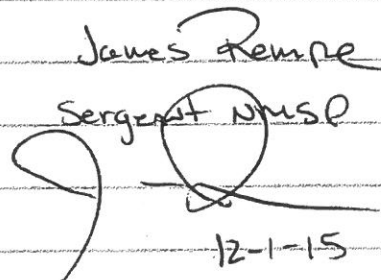 James Rempe
Sergeant NMSP
12-1-15